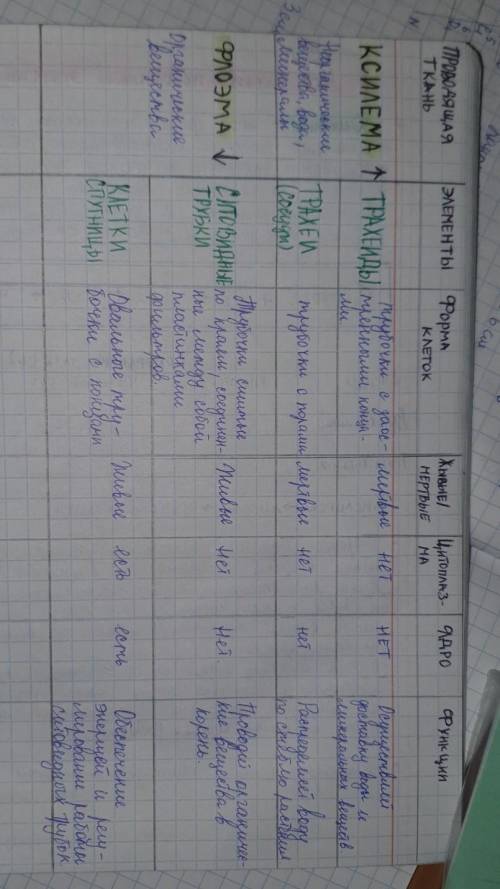 ПРОВОДЯЩАЯ
ТКАНЬ
ЭЛЕМЕНТЫ
ФОРМА
КЛЕТОК
ЖИВЫЕ/
МЕРТВЫЕ
ЦИТОПЛАЗ-
МА
ЯДРО
ФУНКЦИИ
КСИЛЕМА ↑
Неорганические
вещества, вода,
минералы
ТРАХЕИДЫ
трубочки с заос-
тренными конца-
ми
мертвые
НЕТ
НЕТ
Осуществляют
доставку воды и
минеральных веществ
ТРАХЕИ
(сосуды)
трубочки с порами
мертвые
нет
нет
Распределяет воду
по стеблю растения
ФЛОЭМА ↓
Органические
вещества
СИТОВИДНЫЕ
ТРУБКИ
Трубочки сшитые
по краям, соединен-
ные между собой
пластинками
фильтров.
Живые
Нет
Нет
Проводят органичес-
кие вещества в
корень.
КЛЕТКИ
СПУТНИЦЫ
Овальные тру-
бочки с
Живые
есть
есть
Обеспечение
энергией и регу-
лирование работы
ситовидных трубок